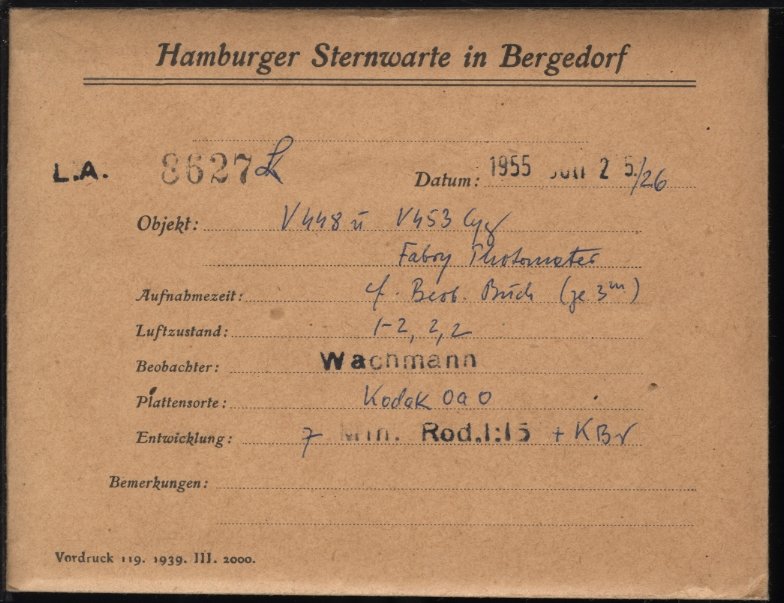 Hamburger Sternwarte in Bergedorf
L.A. 8627
Datum: 1955 2 5./26
Objekt: V448 u V453 Cyg
Fabry Photometer
Aufnahmezeit: cf. Beob. Buch (je 3ᵐ)
Luftzustand: 1-2, 2, 2
Beobachter: Wachmann
Plattensorte: Kodak OaO
Entwicklung: 7 Min. Rod.1:15 + KBr
Bemerkungen:
Vordruck 119. 1939. III. 2000.